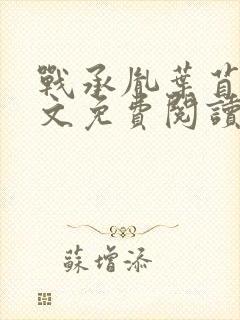 戰承胤葉苜
文免費閱讀
蘇增添